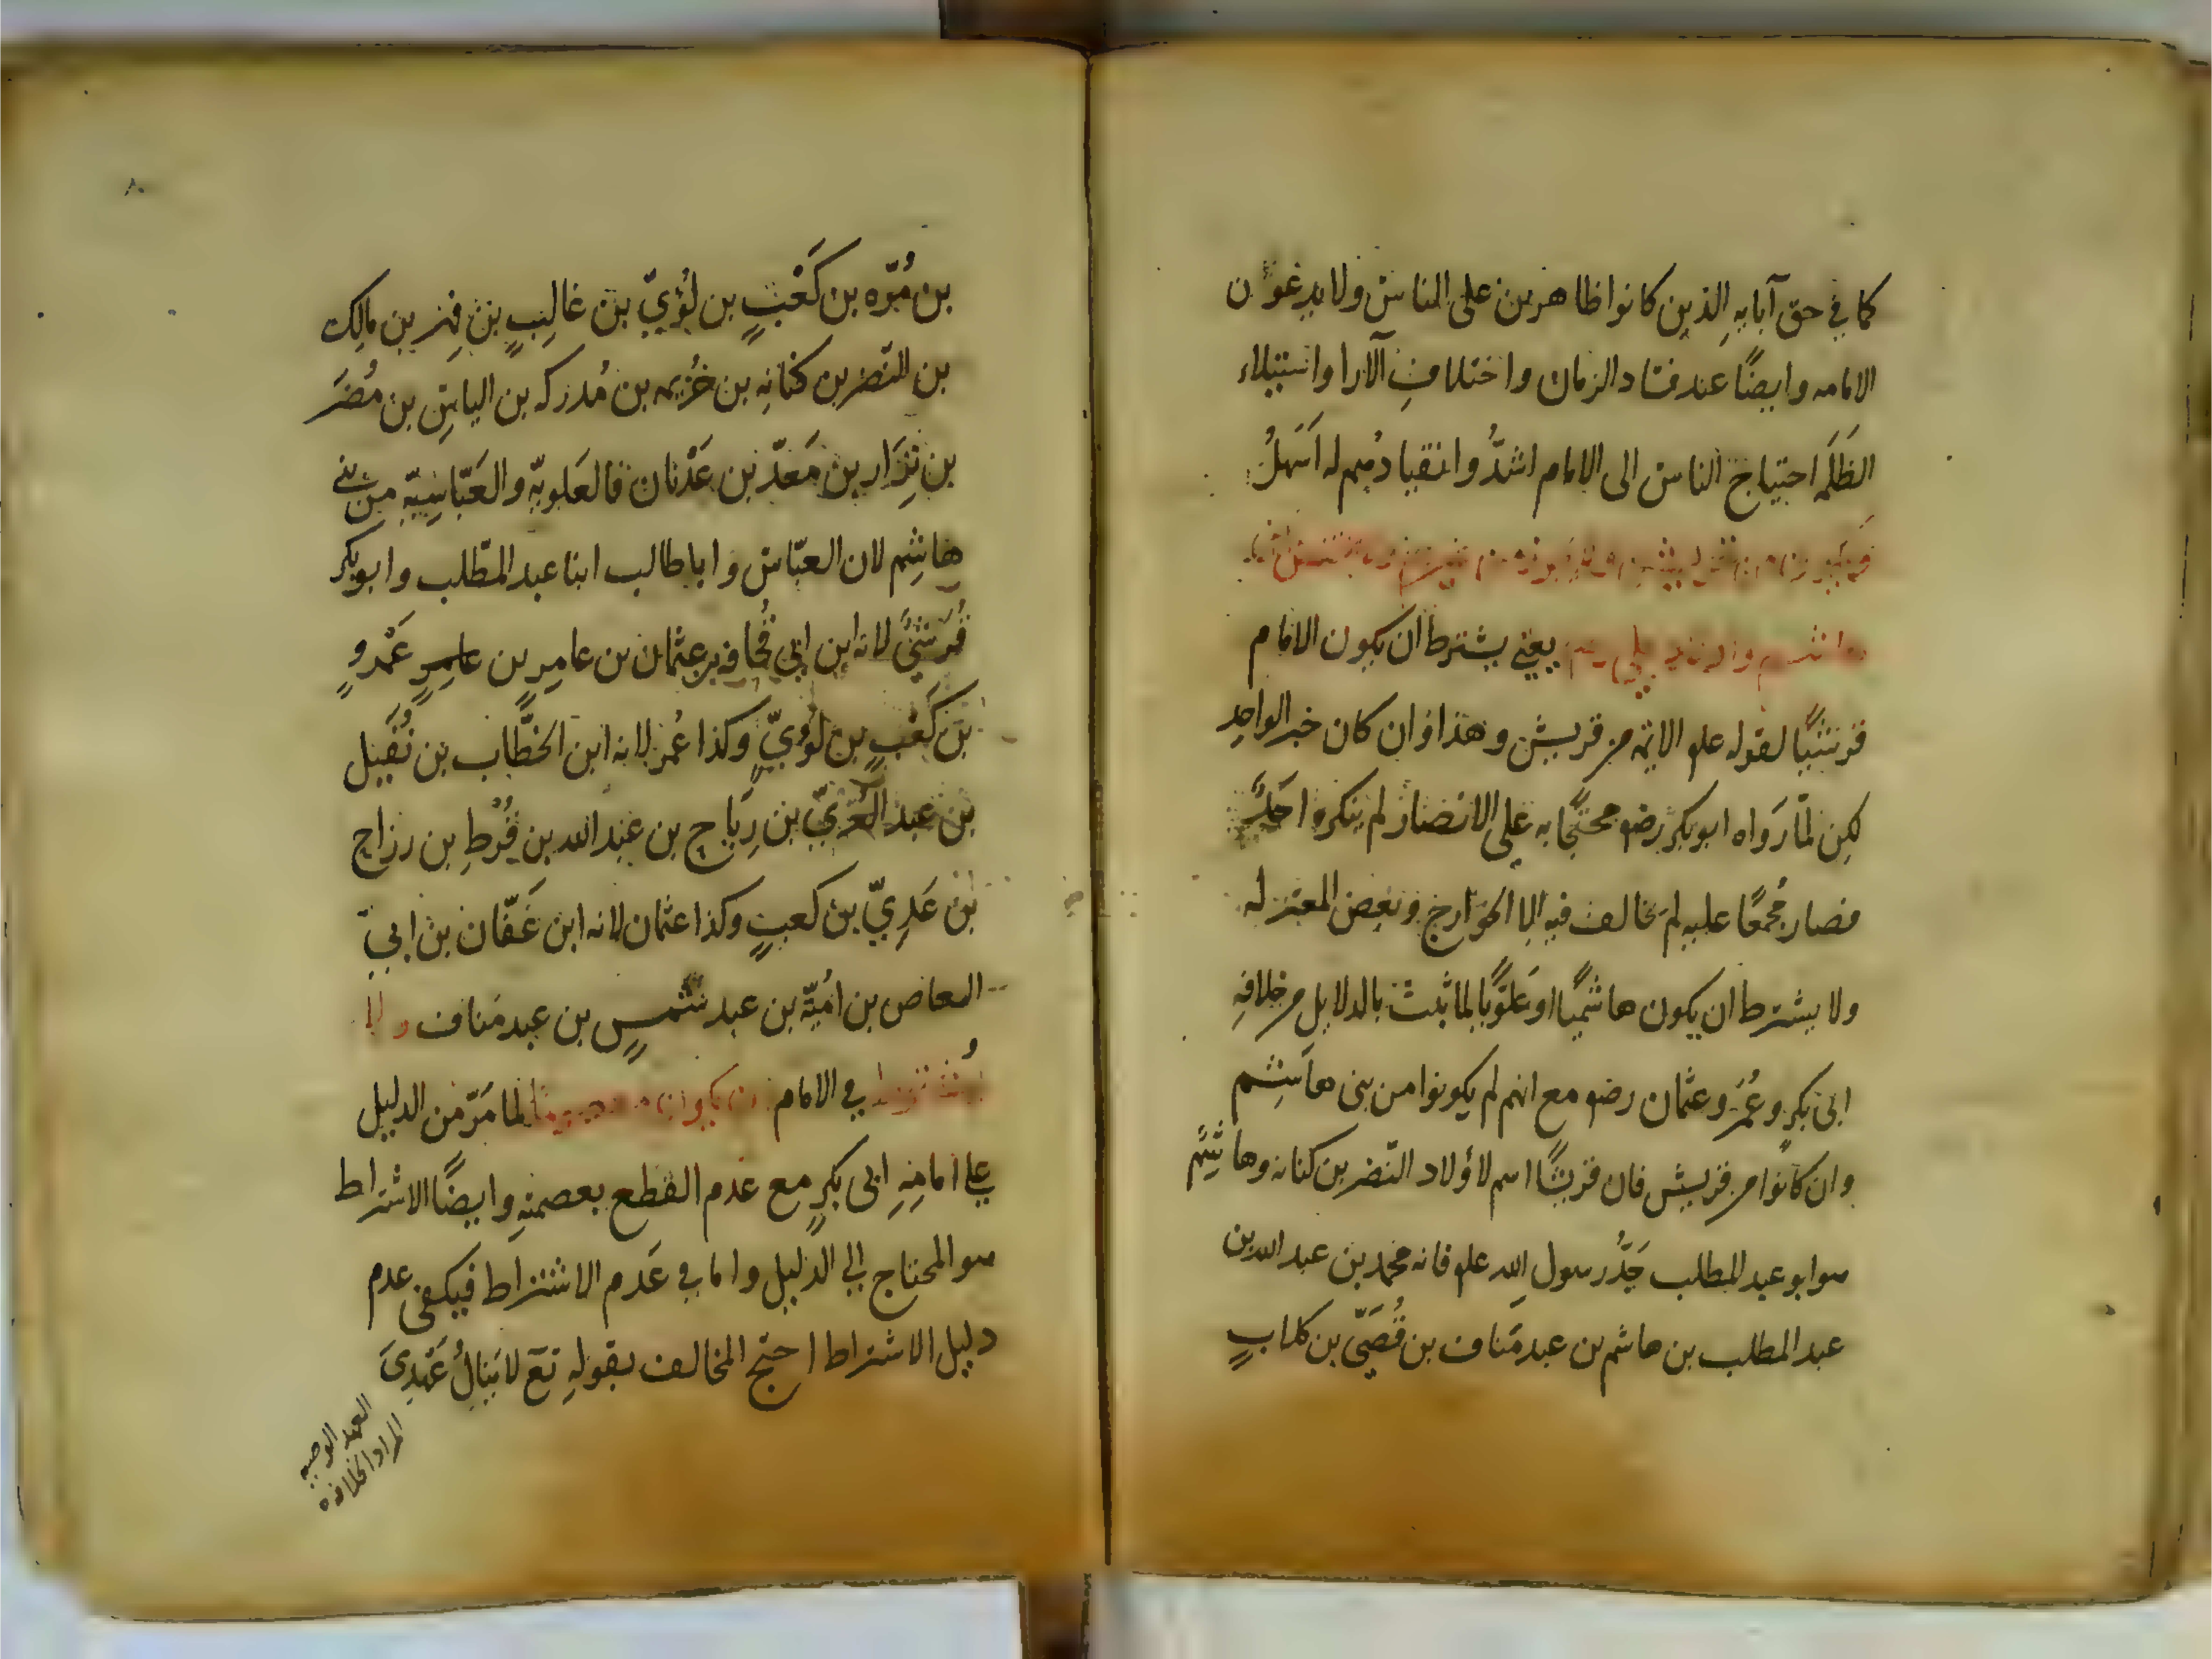 كما في حق آبايهِ الذين كانوا ظاهرين على الناس ولا يدعون
الامامه وايضًا عند فساد الزمان واختلافِ الآرا واستيلاء
الظَلَمه احتياج الناس الى الامام اشدُّ وانقيادُهم له اَسهلُ
يعني يشترط ان يكون الامام
قرشيًا لقوله علم الايمه من قريش وهذا وان كان خبر الواحد
لكن لمّا رَواه ابو بكر رضه محتجًا به على الانصار لم ينكره احَدٌ
فصار مُجمعًا عليه لم يخالف فيه الا الخوارج وبعض المعتزله
ولا يشترط ان يكون هاشميًا او عَلويًا لما ثبت بالدلايل من خلافهِ
ابى بكرٍ وعُمَر وعثمان رضه مع انهم لم يكونوا من بنى هاشم
وان كانوا من قريش فان قريشًا اسم لاولاد النّضر بن كنانه وهاشِمٌ
هو ابو عبد المطلب جَدُّ رسول اللهِ علم فانه محمد بن عبد الله بن
عبد المطلب بن هاشم بن عبد مَناف بن قُصَيّ بن كلابٍ
٨
بن مُرّه بن كَعْبٍ بن لُؤيّ بن غالِبٍ بن فِهْر بن مالِك
بن النّضر بن كنانه بن خُزيمه بن مُدركه بن الياس بن مُضَر
بن نِزَار بن مَعَدّ بن عَدْنان فالعَلويّه والعَبّاسِيّه من بني
هاشِم لان العبّاس وابا طالب ابنا عبد المطّلب وابو بكر
قُرَشيٌّ لانه ابن ابي قُحافه بن عثمان بن عامِرٍ بن عَمْروٍ
بن كَعْبٍ بن لؤيّ وكذا عُمر لانه ابن الخطّاب بن نُفَيل
بن عبد العُزّيّ بن رِيَاح بن عبد الله بن قُرْطِ بن رزاح
بن عَدِيّ بن كعبٍ وكذا عثمان لانه ابن عَفّان بن ابي
العاص بن اميّة بن عبد شمسٍ بن عبد مَناف ولا
يُشترط في الامام ان يكون معصومًا لما مَرّ من الدليل
على امامةِ ابى بكرٍ مع عدم القطع بعصمتهِ وايضًا الاشتراط
هو المحتاج الي الدليل واما في عَدم الاشتراط فيكفى عدم
دليل الاشتراط احتج المخالف بقولهِ تع لا يَنالُ عَهْدِىَ
العهد الوصيه
المراد الخلافه